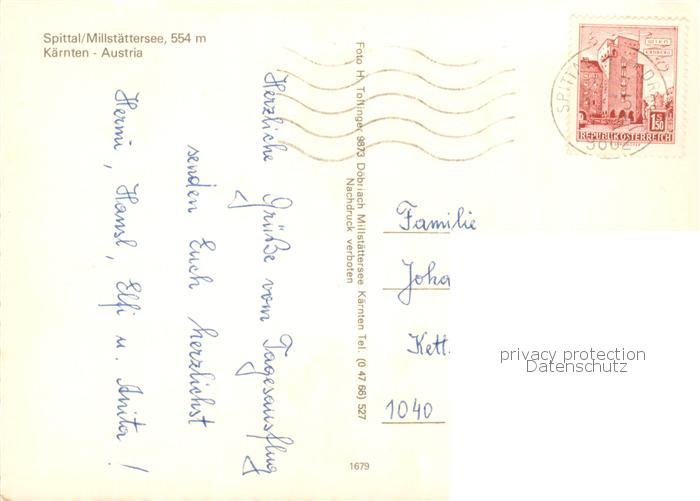 Spittal/Millstättersee, 554 m
Kärnten - Austria
Herzliche Grüße vom Tagesausflug
senden Euch herzlichst
Hermi, Hansl, Elfi u. Anita!
Foto H. Tollinger 9873 Döbriach Millstättersee Kärnten Tel. (0 47 66) 527
Nachdruck verboten
1679
WIEN
ERDBERG
1.50
S
REPUBLIK ÖSTERREICH
SPITTAL
Familie
Joha
Kett.
1040
privacy protection
Datenschutz